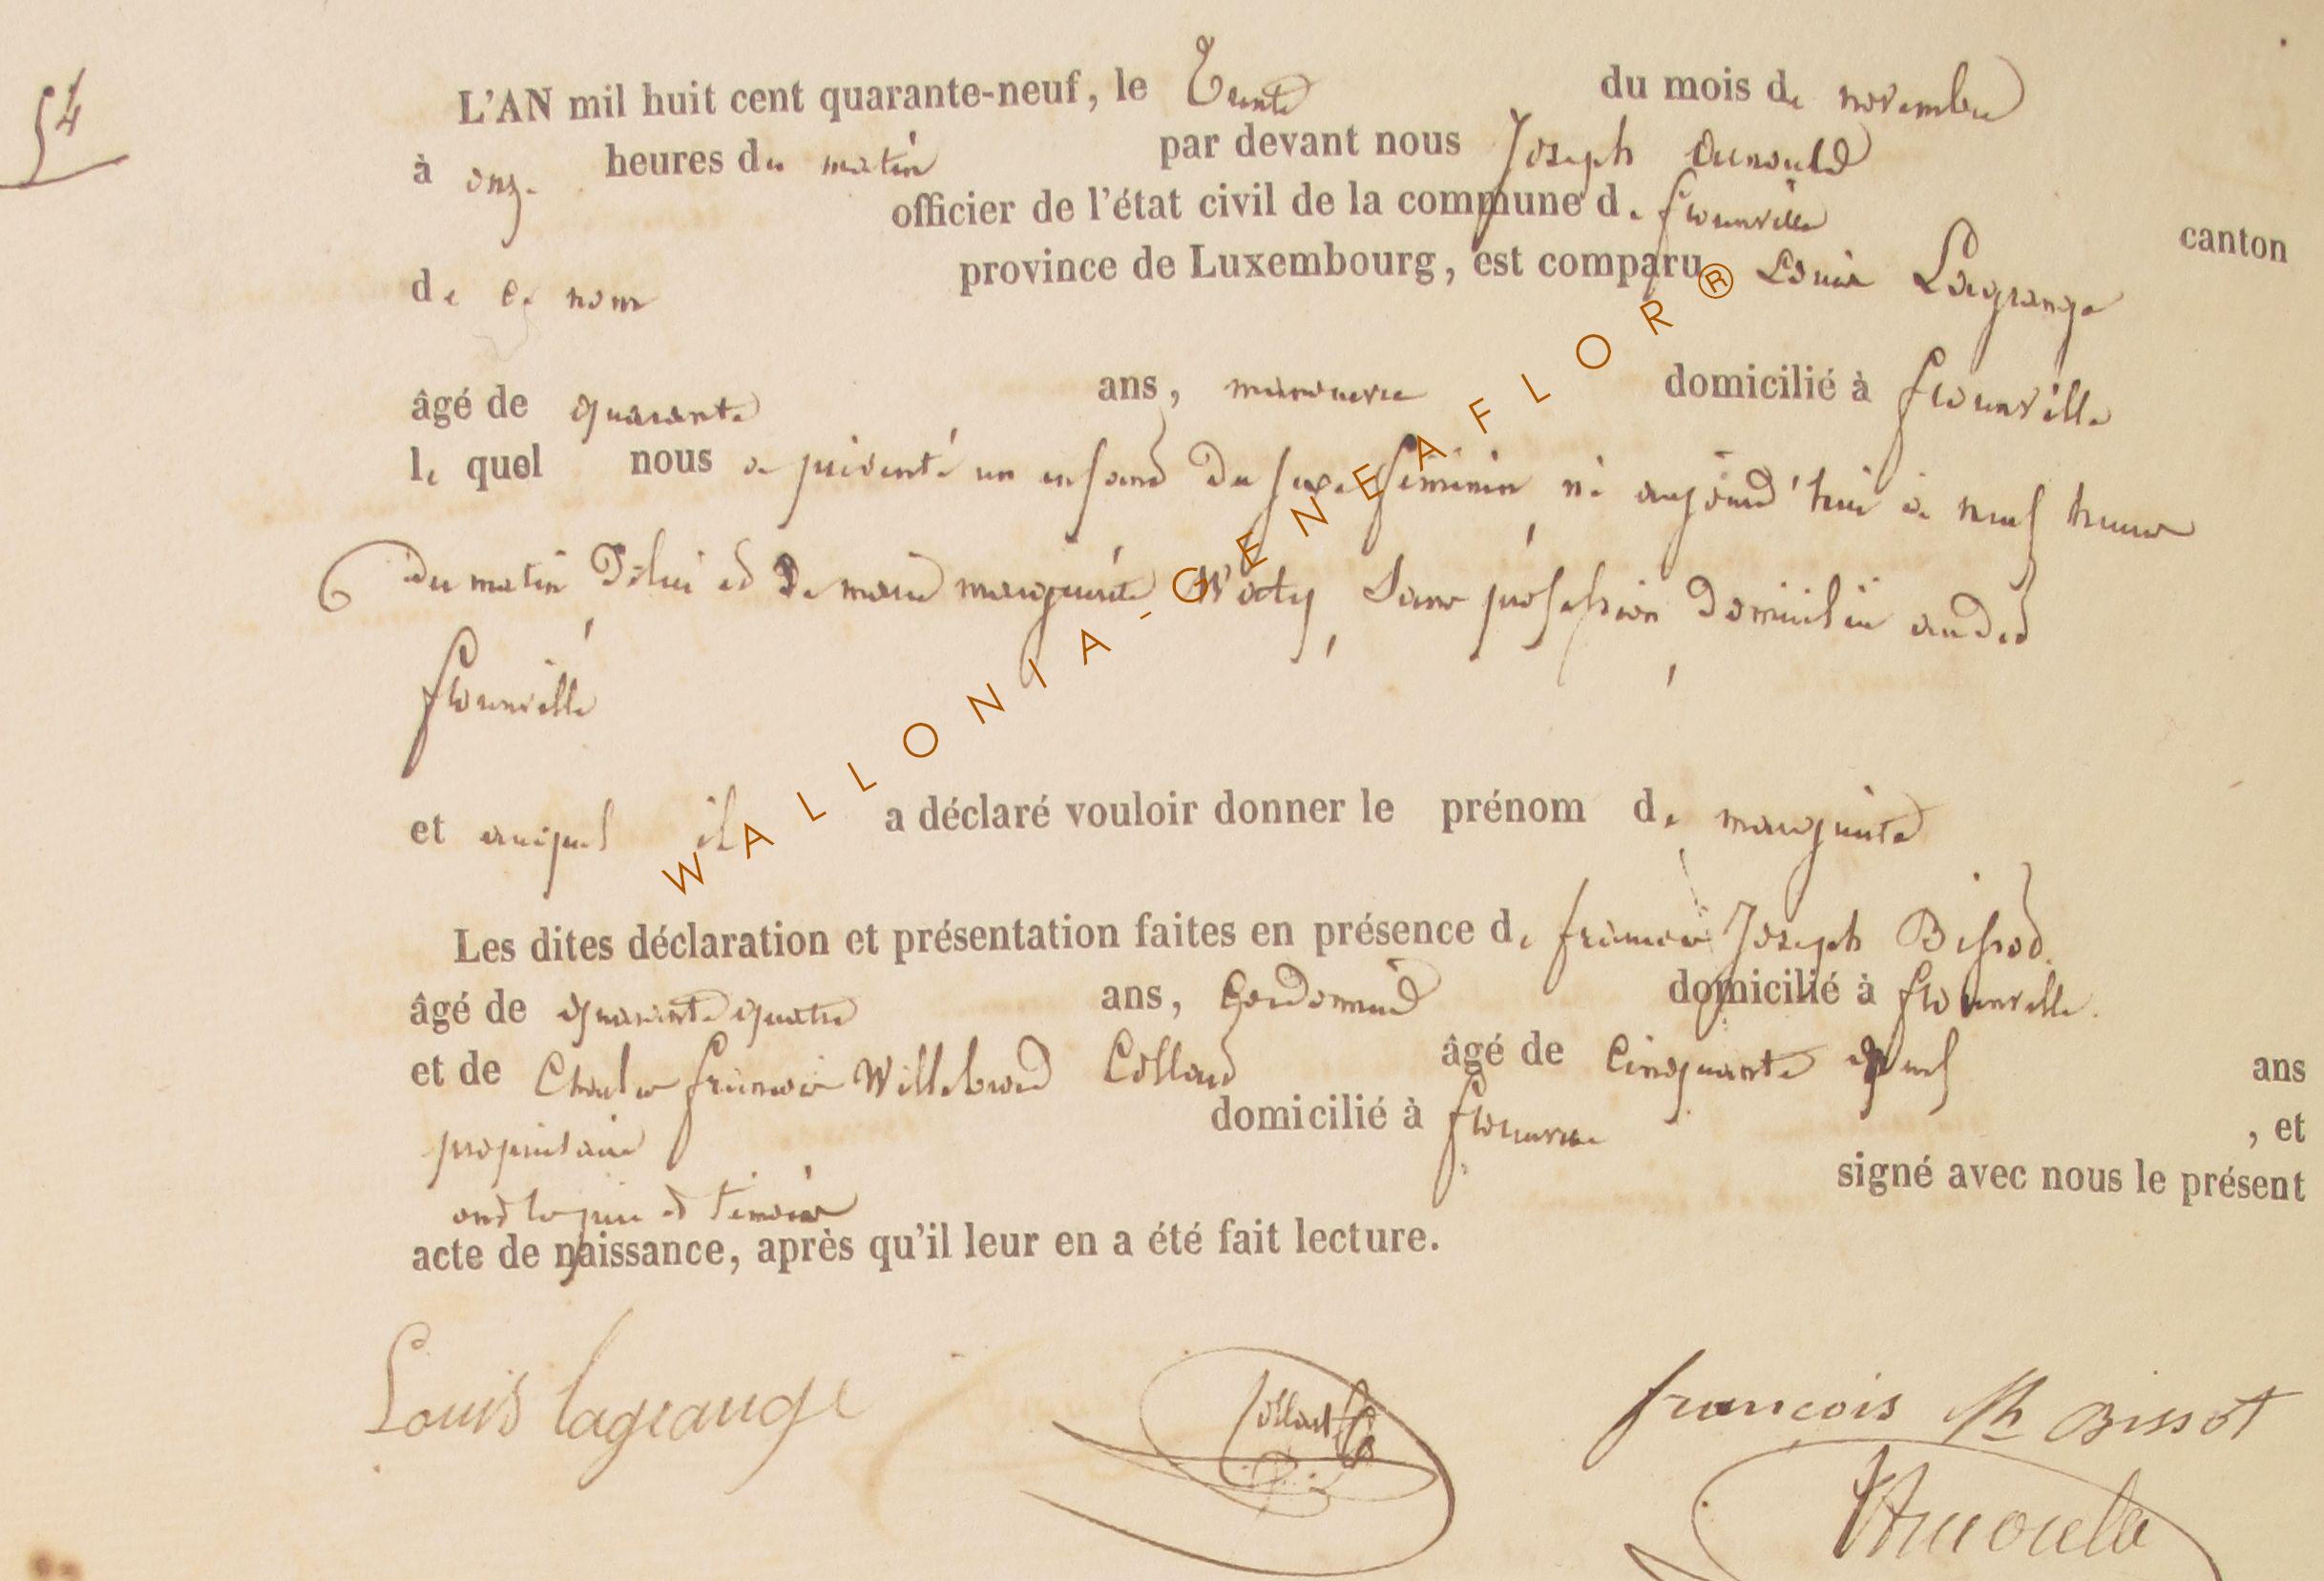 54
L'AN mil huit cent quarante-neuf, le Trente du mois de novembre
à onze heures du matin par devant nous Joseph Arnould
officier de l'état civil de la commune de florenville canton
de ce nom province de Luxembourg, est comparu Louis Lagrange
âgé de quarante ans, manœuvre domicilié à florenville
le quel nous a présenté un enfant du sexe féminin né aujourd'hui à neuf heures
du matin, de lui et de marie marguerite, sans profession, domiciliée audit
florenville
et auquel il a déclaré vouloir donner le prénom de marguerite
Les dites déclaration et présentation faites en présence de françois Joseph Bissot
âgé de quarante quatre ans, Cordonnier domicilié à florenville.
et de Charles françois Willebrord Collard âgé de Cinquante neuf ans
propriétaire domicilié à florenville, et
ont le père et témoins signé avec nous le présent
acte de naissance, après qu'il leur en a été fait lecture.
Louis lagrange Collard françois Jh Bissot
JArnould
WALLONIA-GENEAFLOR®